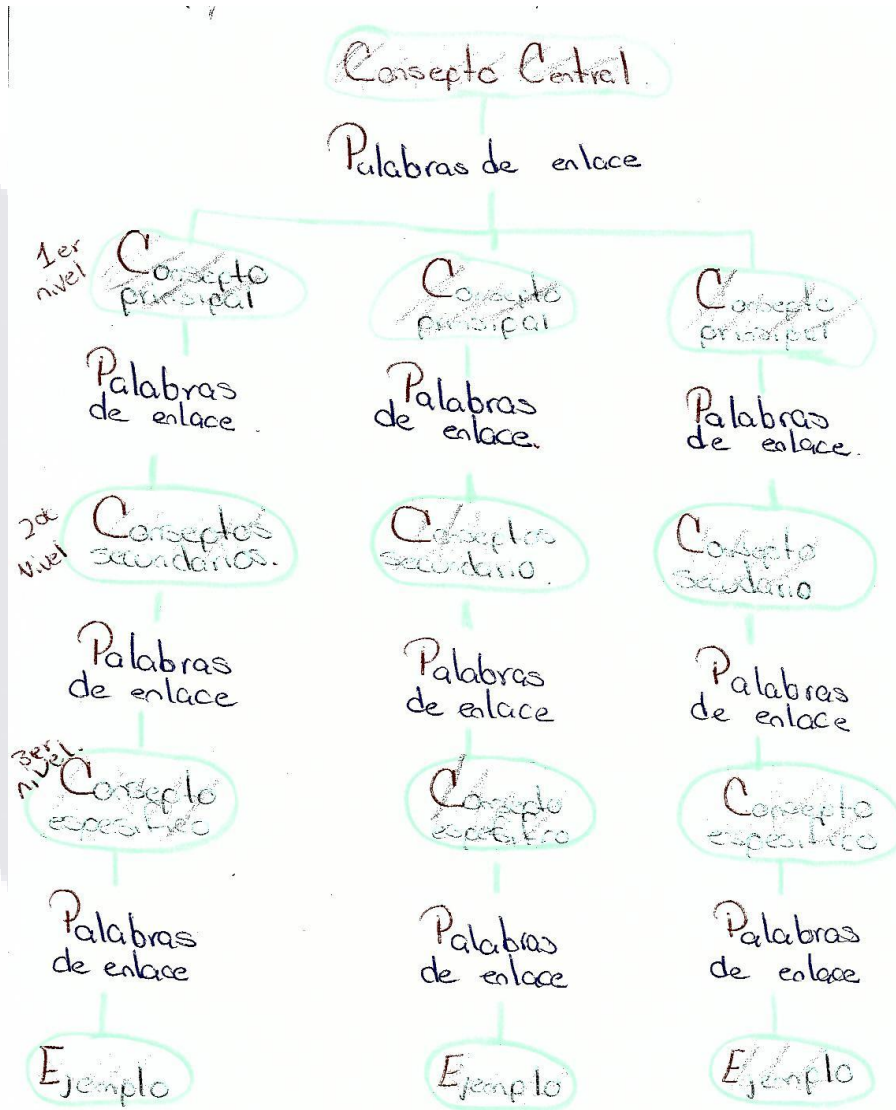 Consepto Central.
Palabras de enlace
1er
nivel
Consepto
prinsipal
Consepto
prinsipal
Consepto
prinsipal
Palabras
de enlace.
Palabras
de enlace.
Palabras
de enlace.
2do
Nivel
Conseptos
secundarios.
Conseptos
secundario.
Consepto
secundario
Palabras
de enlace
Palabras
de enlace
Palabras
de enlace
3er
nivel.
Consepto
espesifico
Consepto
espesifico
Consepto
espesifico
Palabras
de enlace
Palabras
de enlace
Palabras
de enlace
Ejemplo
Ejemplo
Ejemplo